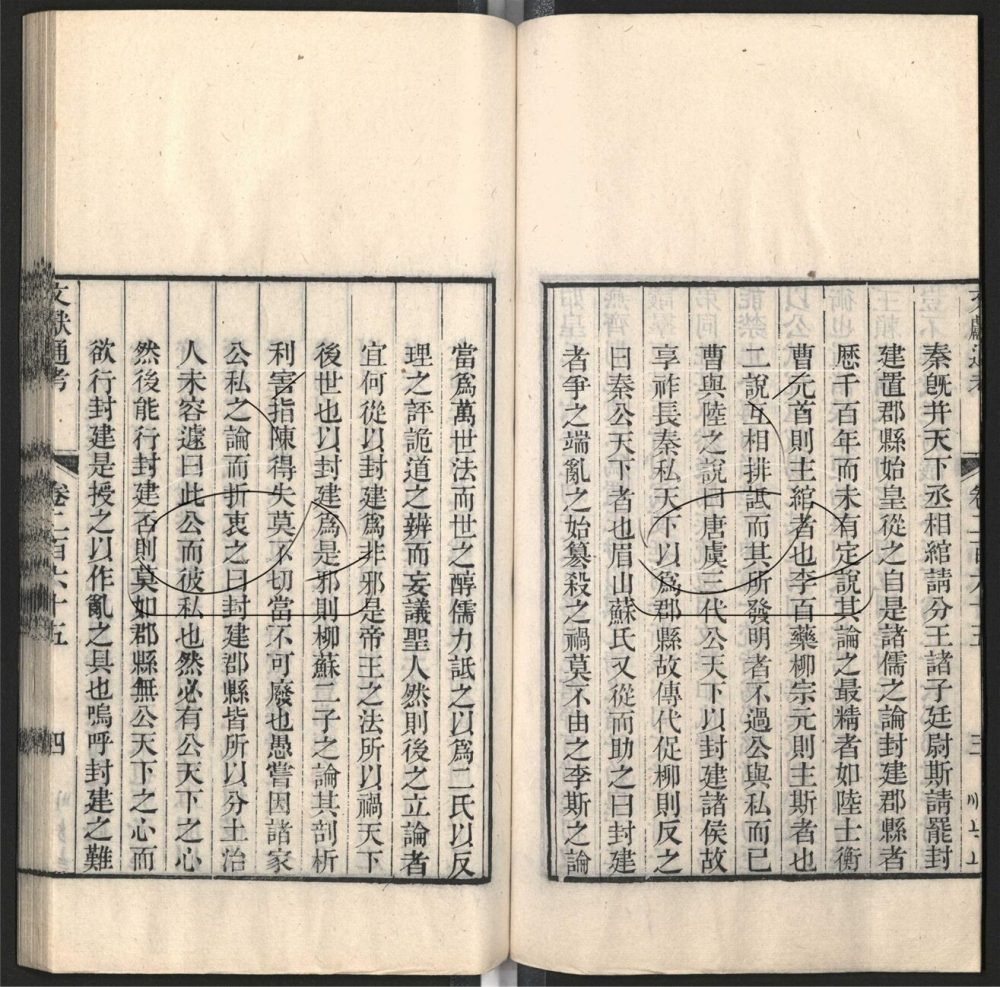 秦旣并天下丞相綰請分王諸子廷尉斯請罷封
建置郡縣始皇從之自是諸儒之論封建郡縣者
歷千百年而未有定說其論之最精者如陸士衡
曹元首則主綰者也李百藥柳宗元則主斯者也
二說互相排詆而其所發明者不過公與私而已
曹與陸之說曰唐虞三代公天下以封建諸侯故
享祚長秦私天下以爲郡縣故傳代促柳則反之
曰秦公天下者也眉山蘇氏又從而助之曰封建
者爭之端亂之始簒殺之禍莫不由之李斯之論
當爲萬世法而世之醇儒力詆之以爲二氏以反
理之評詭道之辨而妄議聖人然則後之立論者
宜何從以封建爲非邪是帝王之法所以禍天下
後世也以封建爲是邪則柳蘇二子之論其剖析
利害指陳得失莫不切當不可廢也愚嘗因諸家
公私之論而折衷之曰封建郡縣皆所以分土治
人未容遽曰此公而彼私也然必有公天下之心
然後能行封建否則莫如郡縣無公天下之心而
欲行封建是授之以作亂之具也嗚呼封建之難
文獻通考
卷二百六十五
四